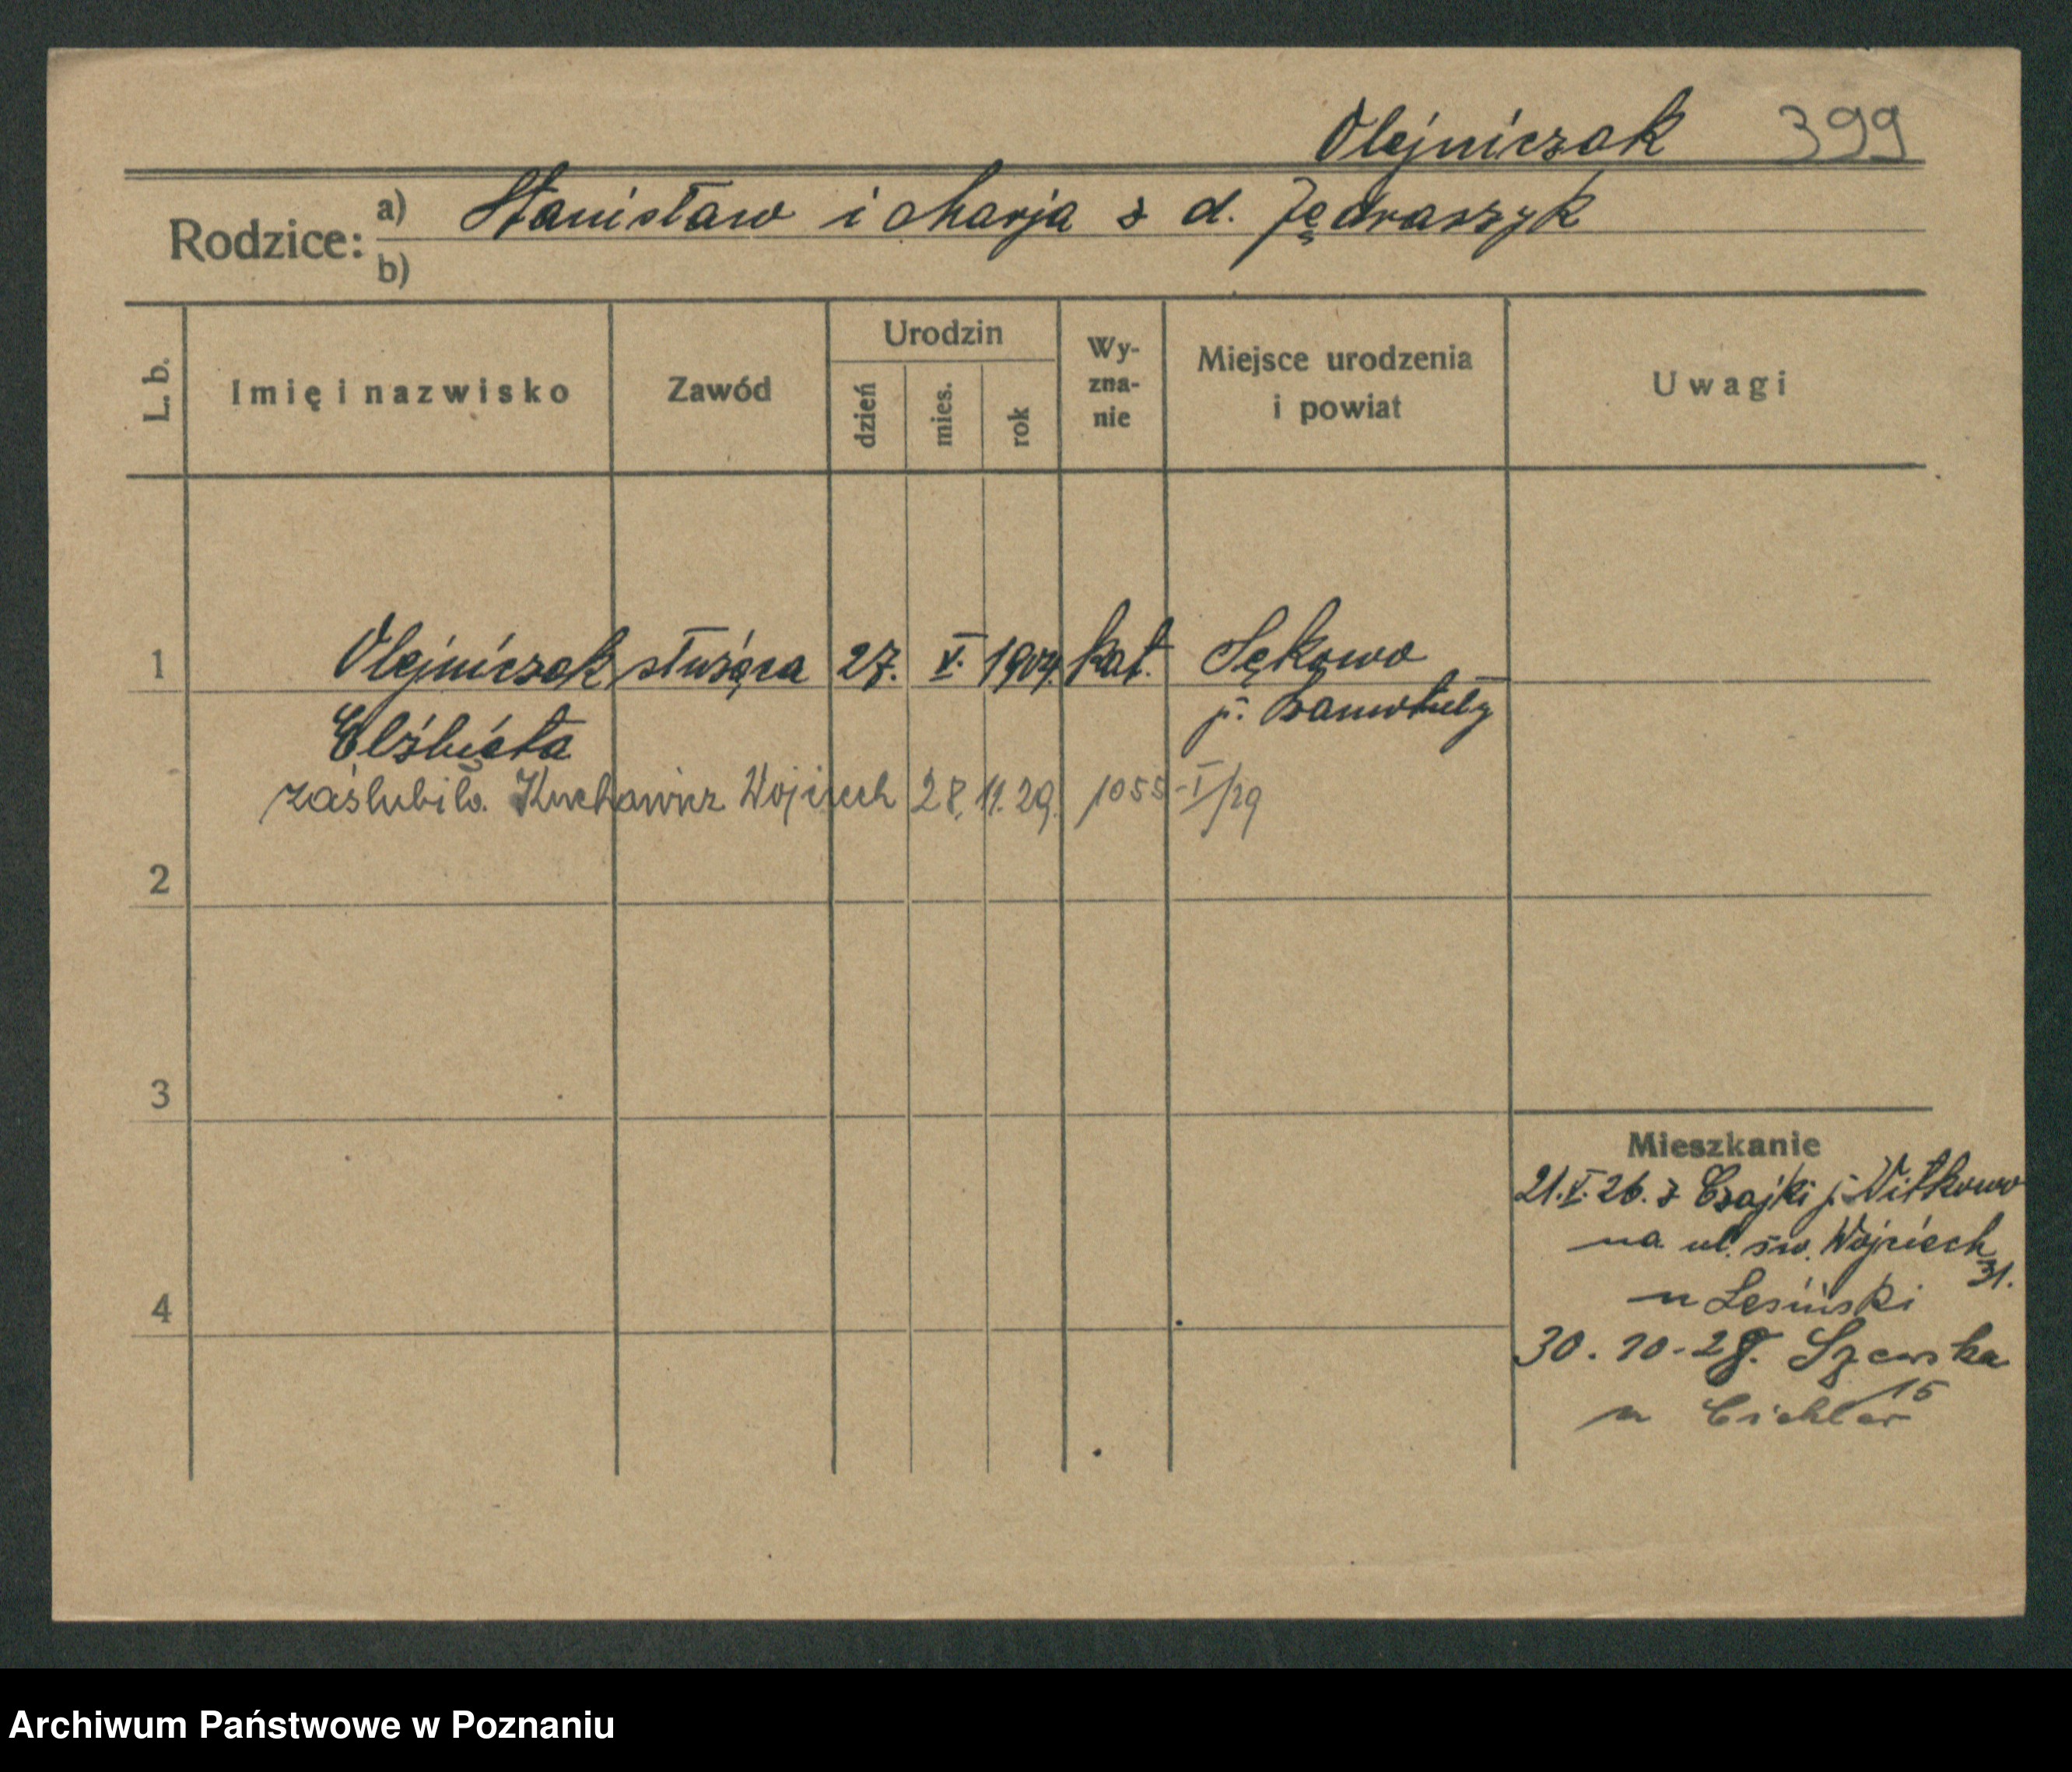 Olejniczak 399
Rodzice: a) Stanisław i Marja z d. Jędraszyk
b)
L. b. Imię i nazwisko Zawód Urodzin dzień mies. rok Wy-zna-nie Miejsce urodzenia i powiat Uwagi
1 Olejniczak służąca 27. V. 1904 kat. Sękowo
Elżbieta p. Szamotuły
zaślubiła Wojciech 28. 11. 29. 1055-I/29
2
3
Mieszkanie
21.V.26. z Czajki p. Witkowo
na ul. św. Wojciech
31.
u Lesiński
4
30.10-28. Szewska
15
u Cichler
Archiwum Państwowe w Poznaniu